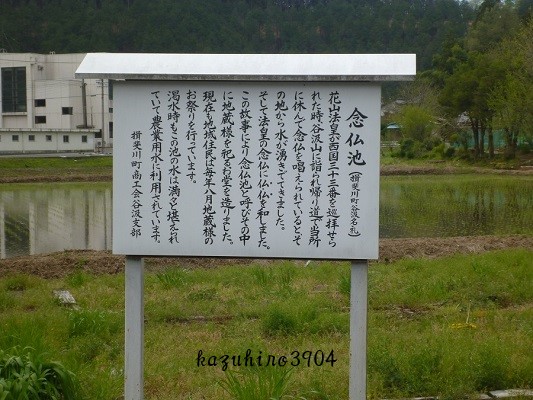 念仏池(揖斐川町谷汲名礼)
花山法皇が西国三十三番を巡拝せら
れた時谷汲山に詣られ帰り道で当所
に休んで念仏を唱えられているとそ
の地から水が湧きでてきました。
そして法皇の念仏に仏仏を和しました。
この故事により念仏池と呼びその中
に地蔵様を祀るお堂を造りました。
現在も地域住民は毎年八月地蔵様の
お祭りを行っています。
渇水時もこの池の水は満々と堪えられ
ていて農業用水に利用されています。
揖斐川町商工会谷汲支部
kazuhiro3904